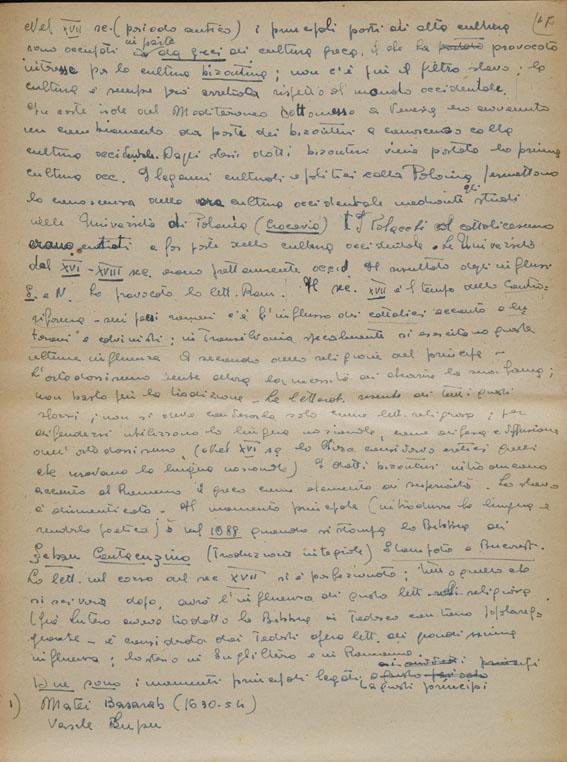 147)
Nel XVII sec. (periodo antico) i principali posti di alta cultura
sono occupati in parte da greci di cultura greca, il che ha provocato
interesse per la cultura bizantina; non c'è più il filtro slavo; la
cultura è sempre più arretrata rispetto al mondo occidentale.
In certe isole del Mediterraneo sottomesse a Venezia era avvenuto
un cambiamento da parte dei bizantini a conoscenza colla
cultura occidentale. Dagli stessi dotti bizantini viene portata la prima
cultura occ. I legami culturali e politici colla Polonia permettono
la conoscenza della vera cultura occidentale mediante gli studi
nelle Università di Polonia (Cracovia) I Polacchi al cattolicesimo
erano entrati a far parte della cultura occidentale. Le Università
del XVI - XVIII sec. erano prettamente occid. Il risultato degli influssi
S. e N. ha provocato la lett. Rom. Il sec. XVII è il tempo della Contro-
riforma - nei paesi rumeni c'è l'influsso dei cattolici accanto a lu-
terani e calvinisti; in Transilvania specialmente si esercitano queste
ultime influenze a seconda della religione del principe -
L'ortodossismo sente allora la necessità di chiarire la sua forza;
non basta più la tradizione - La letterat. risente di tutti questi
sforzi; non si deve considerarla solo come lett. religiosa; per
difendersi utilizzano la lingua nazionale, come difesa e diffusione
dell'ortodossismo, (Nel XVI sec. la Chiesa considerava eretici quelli
che usavano la lingua nazionale) I dotti bizantini introducono
accanto al Rumeno il greco come elemento di superiorità. Lo slavo
è dimenticato - Il momento principale (introdurre la lingua e
renderla poetica) è nel 1688 quando si stampa la Bibbia di
Șerban Cantacuzino (Traduzione integrale) Stampata a Bucarest.
La lett. nel corso del sec. XVII si è perfezionata; tutto quello che
si scriverà dopo, avrà l'influenza di questa lett. religiosa
(già Lutero aveva tradotto la Bibbia in Tedesco
è considerata dai Tedeschi opera lett. di grandissima
influenza; lo stesso in Inghilterra e in Romania.
Due sono i momenti principali legati a questi principi
1) Matei Basarab (1630-54)
Vasile Lupu